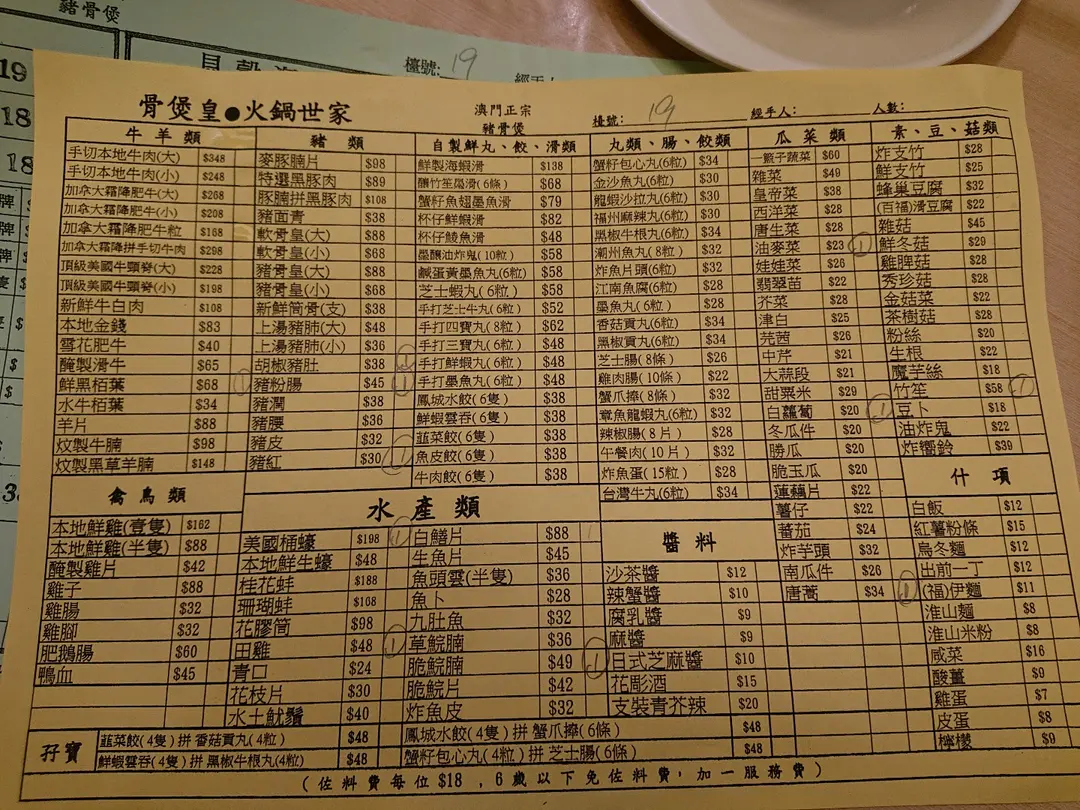 豬骨煲
檯號: 19
19
18
18
骨煲皇●火鍋世家
澳門正宗
豬骨煲
檯號: 19
經手人:
人數:
牛羊類
手切本地牛肉(大) $348
手切本地牛肉(小) $248
加拿大霜降肥牛(大) $268
加拿大霜降肥牛(小) $208
加拿大霜降肥牛粒 $168
加拿大霜降拼手切牛肉 $298
頂級美國牛頸脊(大) $228
頂級美國牛頸脊(小) $198
新鮮牛白肉 $108
本地金錢 $83
雪花肥牛 $40
醃製滑牛 $65
鮮黑栢葉 $68
水牛栢葉 $34
羊片 $88
炆製牛腩 $98
炆製黑草羊腩 $148
豬類
麥豚腩片 $98
特選黑豚肉 $89
豚腩拼黑豚肉 $108
豬面青 $38
軟骨皇(大) $88
軟骨皇(小) $68
豬骨皇(大) $88
豬骨皇(小) $68
新鮮筒骨(支) $38
上湯豬肺(大) $48
上湯豬肺(小) $36
胡椒豬肚 $38
豬粉腸 $45
豬潤 $38
豬腰 $36
豬皮 $32
豬紅 $30
自製鮮丸、餃、滑類
鮮製海蝦滑 $138
釀竹笙風滑(6條) $68
蟹籽魚翅墨魚滑 $79
杯仔鮮蝦滑 $82
杯仔鯪魚滑 $48
墨釀油炸鬼(10粒) $58
鹹蛋黃墨魚丸(6粒) $58
芝士蝦丸(6粒) $58
手打芝士牛丸(6粒) $52
手打四寶丸(8粒) $62
手打三寶丸(6粒) $48
手打鮮蝦丸(6粒) $48
手打墨魚丸(6粒) $48
鳳城水餃(6隻) $38
鮮蝦雲吞(6隻) $38
韮菜餃(6隻) $38
魚皮餃(6隻) $38
牛肉餃(6隻) $38
丸類、腸、餃類
蟹籽包心丸(6粒) $34
金沙魚丸(6粒) $30
龍蝦沙拉丸(6粒) $30
福州麻辣丸(6粒) $30
黑椒牛根丸(6粒) $34
潮州魚丸(8粒) $32
炸魚片頭(6粒) $32
江南魚腐(6粒) $28
墨魚丸(6粒) $28
香菇貢丸(6粒) $34
黑椒貢丸(6粒) $34
芝士腸(8條) $26
雞肉腸(10條) $22
蟹爪捧(8條) $32
章魚龍蝦丸(6粒) $32
辣椒腸(8片) $28
午餐肉(10片) $32
炸魚蛋(15粒) $28
台灣牛丸(6粒) $34
瓜菜類
一籃子蔬菜 $60
雜菜 $49
皇帝菜 $38
西洋菜 $28
唐生菜 $28
油麥菜 $23
娃娃菜 $26
翡翠苗 $22
芥菜 $28
津白 $25
芫茜 $26
中芹 $21
大蒜段 $21
甜粟米 $29
白蘿蔔 $20
冬瓜件 $20
勝瓜 $20
脆玉瓜 $20
蓮藕片 $22
薯仔 $22
蕃茄 $24
炸芋頭 $32
南瓜件 $26
唐蒿 $34
素、豆、菇類
炸支竹 $28
鮮支竹 $25
蜂巢豆腐 $32
(百福)滑豆腐 $22
雜菇 $45
鮮冬菇 $29
雞脾菇 $28
秀珍菇 $28
金菇菜 $22
茶樹菇 $28
粉絲 $20
生根 $22
魔芋絲 $18
竹笙 $58
豆卜 $18
油炸鬼 $22
炸嚮鈴 $39
禽鳥類
本地鮮雞(壹隻) $162
本地鮮雞(半隻) $88
醃製雞片 $42
雞子 $88
雞腸 $32
雞腳 $32
肥鵝腸 $60
鴨血 $45
水產類
美國桶蠔 $198
本地鮮生蠔 $48
桂花蚌 $188
珊瑚蚌 $168
花膠筒 $98
田雞 $48
青口 $24
花枝片 $30
水土魷鬚 $40
白鱔片 $88
生魚片 $45
魚頭雲(半隻) $36
魚卜 $28
九肚魚 $32
草鯇腩 $36
脆鯇腩 $49
脆鯇片 $42
炸魚皮 $32
醬料
沙茶醬 $12
辣蟹醬 $10
腐乳醬 $9
麻醬 $9
日式芝麻醬 $10
花彫酒 $15
支裝青芥辣 $20
什項
白飯 $12
紅薯粉條 $15
烏冬麵 $12
出前一丁 $12
(福)伊麵 $11
淮山麵 $8
淮山米粉 $8
咸菜 $16
酸薑 $9
雞蛋 $7
皮蛋 $8
檸檬 $9
孖寶
韮菜餃(4隻)拼香菇貢丸(4粒) $48
鮮蝦雲吞(4隻)拼黑椒牛根丸(4粒) $48
鳳城水餃(4隻)拼蟹爪捧(6條) $48
蟹籽包心丸(4粒)拼芝士腸(6條) $48
(佐料費每位$18,6歲以下免佐料費,加一服務費)